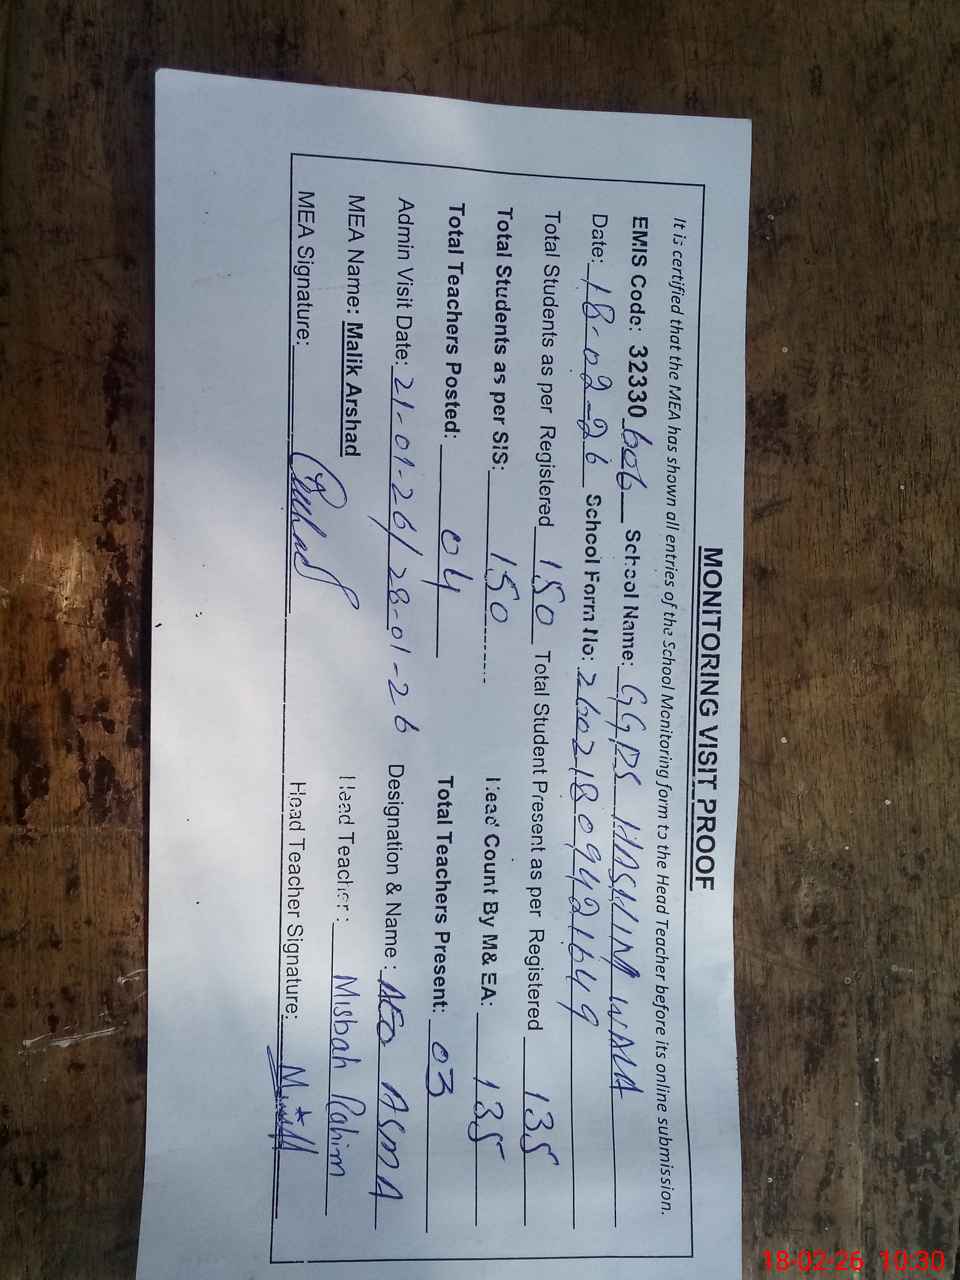 MONITORING VISIT PROOF
It is certified that the MEA has shown all entries of the School Monitoring form to the Head Teacher before its online submission.
EMIS Code: 32330 606 School Name: GGPS HASHIM WALA
Date: 18-02-26 School Form No: 26021809421649
Total Students as per Registered 150 Total Student Present as per Registered 135
Total Students as per SIS: 150 Head Count By M& EA: 135
Total Teachers Posted: 04 Total Teachers Present: 03
Admin Visit Date: 21-01-26/ 28-01-26 Designation & Name: AEO ASMA
MEA Name: Malik Arshad Head Teacher: Misbah Rahim
MEA Signature: Head Teacher Signature:
18-02-26 10:30